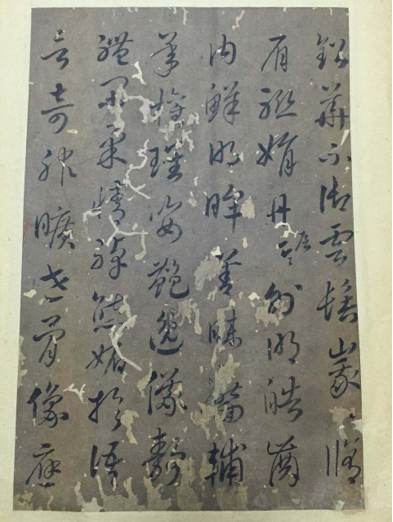 鈆華不御雲髻峩〻脩
眉聯娟丹唇外朗皓齒
内鮮明眸善睐靨輔
承權瓌姿艶逸儀静
體閑柔情綽態媚於語
言奇服曠世骨像應